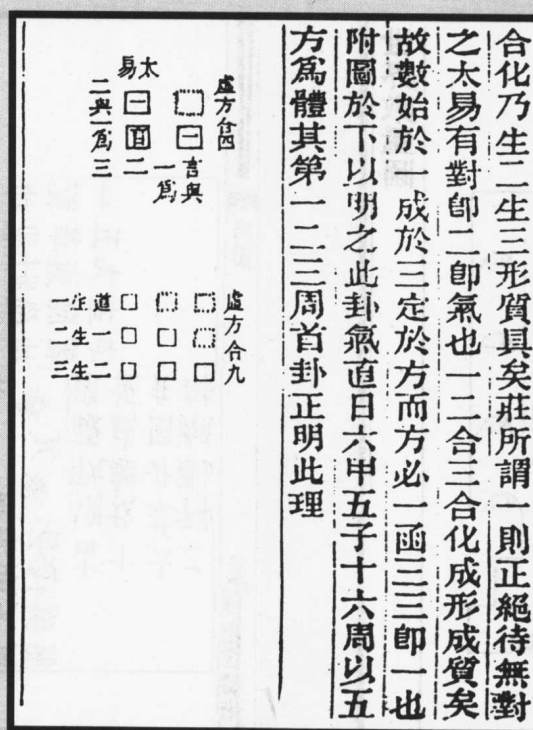 合化乃生二生三形質具矣莊所謂則正絕待無對
之太易有對卽二卽氣也一二合三合化成形成質矣
故數始於一成於三定於方而方必一函三三卽一也
附圖於下以明之此卦氣直日六甲五子十六周以五
方爲體其第一二三周首卦正明此理
虛方合四
言與
一爲
一
太易
一
二
二與一爲三
虛方合九
道一二
生生生
一二三